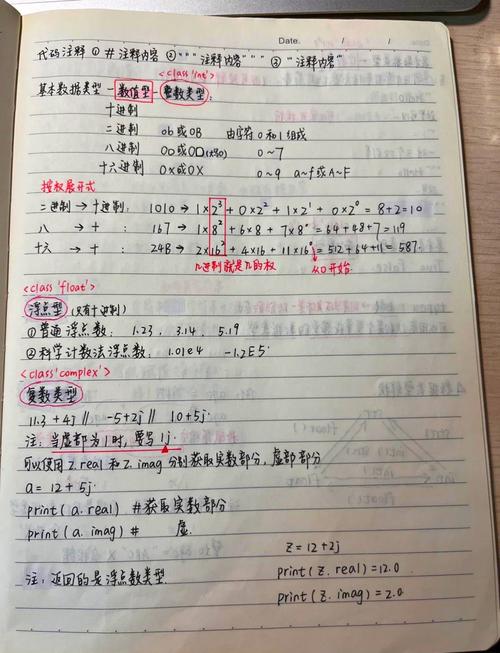 Date. / /
代码注释 ① # 注释内容 ② """ 注释内容 """ ③ "注释内容"
<class 'int'>
基本数据类型 - 数值型 - 整数类型:
十进制
二进制 0b或0B 由字符0和1组成
八进制 0o或0O(大写O) 0~7
十六进制 0x或0X 0~9 a~f或A~F
按权展开式
二进制 → 十进制: 1010 → 1×2³ + 0×2² + 1×2¹ + 0×2⁰ = 8+2=10
八 → 十: 167 → 1×8² + 6×8 + 7×8⁰ = 64+48+7=119
十六 → 十: 24B → 2×16² + 4×16 + 11×16⁰ = 512+64+11=587.
几进制就是几的权 从0开始.
<class 'float'>
浮点型 (只有十进制)
① 普通浮点数: 1.23, 3.14 5.19
② 科学计数法浮点数: 1.01e4 -1.2E5
<class 'complex'>
复数类型
11.3 + 4j // -5+2j // 10+5j
注: 当虚部为1时, 要写1j.
可以使用 z.real 和 z.imag 分别获取实数部分, 虚部部分
a = 12 + 5j
print(a.real) #获取实数部分
print(a.imag) # 虚.
z = 12+2j
注: 返回的是浮点数类型 print(z.real)=12.0
print(z.imag)=2.0